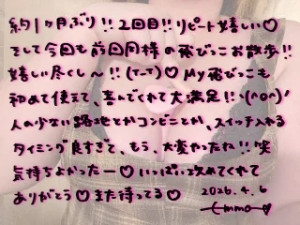 約1ヶ月ぶり!!2回目!!リピート嬉しい♡
そして今回も前回同様の飛びっこお散歩!!
嬉し尽くし〜!!(T-T)♡My飛びっこも
初めて使えて、喜んでくれて大満足!!\(^o^)/
人の少ない路地とかコンビニとか、スイッチ入れる
タイミング良すぎて、もう、大変やったね!!笑
気持ちよかったー♡いっぱい攻めてくれて
ありがとう♡また待ってる♡
2026.4.6
Emma